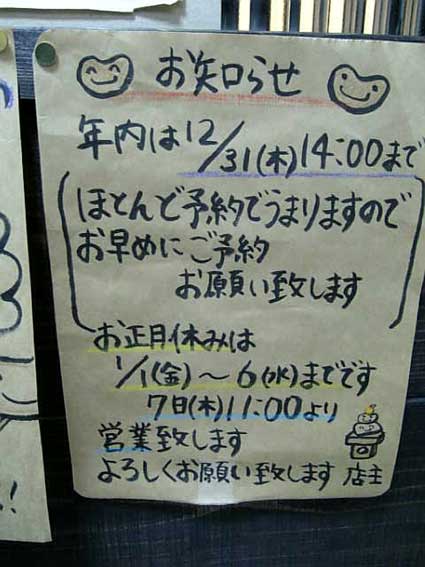 お知らせ
年内は12/31(木)14:00まで
ほとんど予約でうまりますので
お早めにご予約
お願い致します
お正月休みは
1/1(金)～6(水)までです
7日(木)11:00より
営業致します
よろしくお願い致します 店主